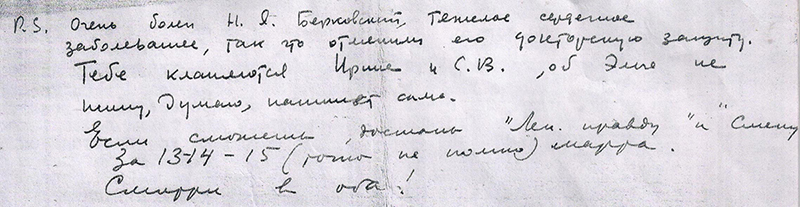 P.S. Очень болен Н. Я. Берковский, тяжелое сердечное
заболевание, так что отменили его докторскую защиту.
Тебе кланяются Ирина и С.В., об Элле не
пишу, думаю, напишет сама.
Если сможешь, достань "Лен. правду" и "Смену"
За 1314-15 (точно не помню) марта.
Смотри в оба!